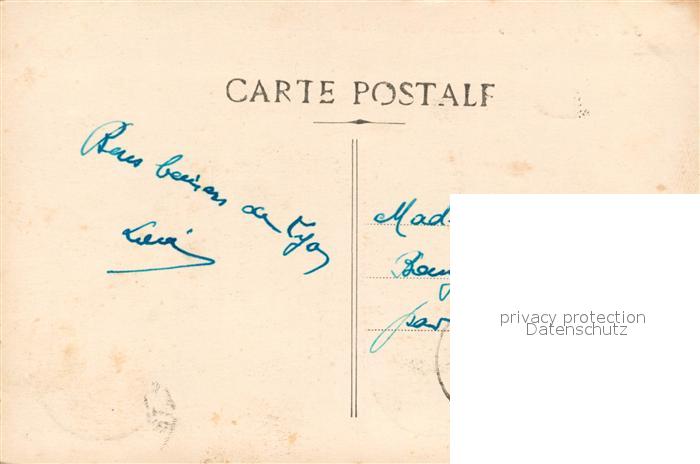 CARTE POSTALE
Bons baisers de Lyon
Mad
par
privacy protection
Datenschutz